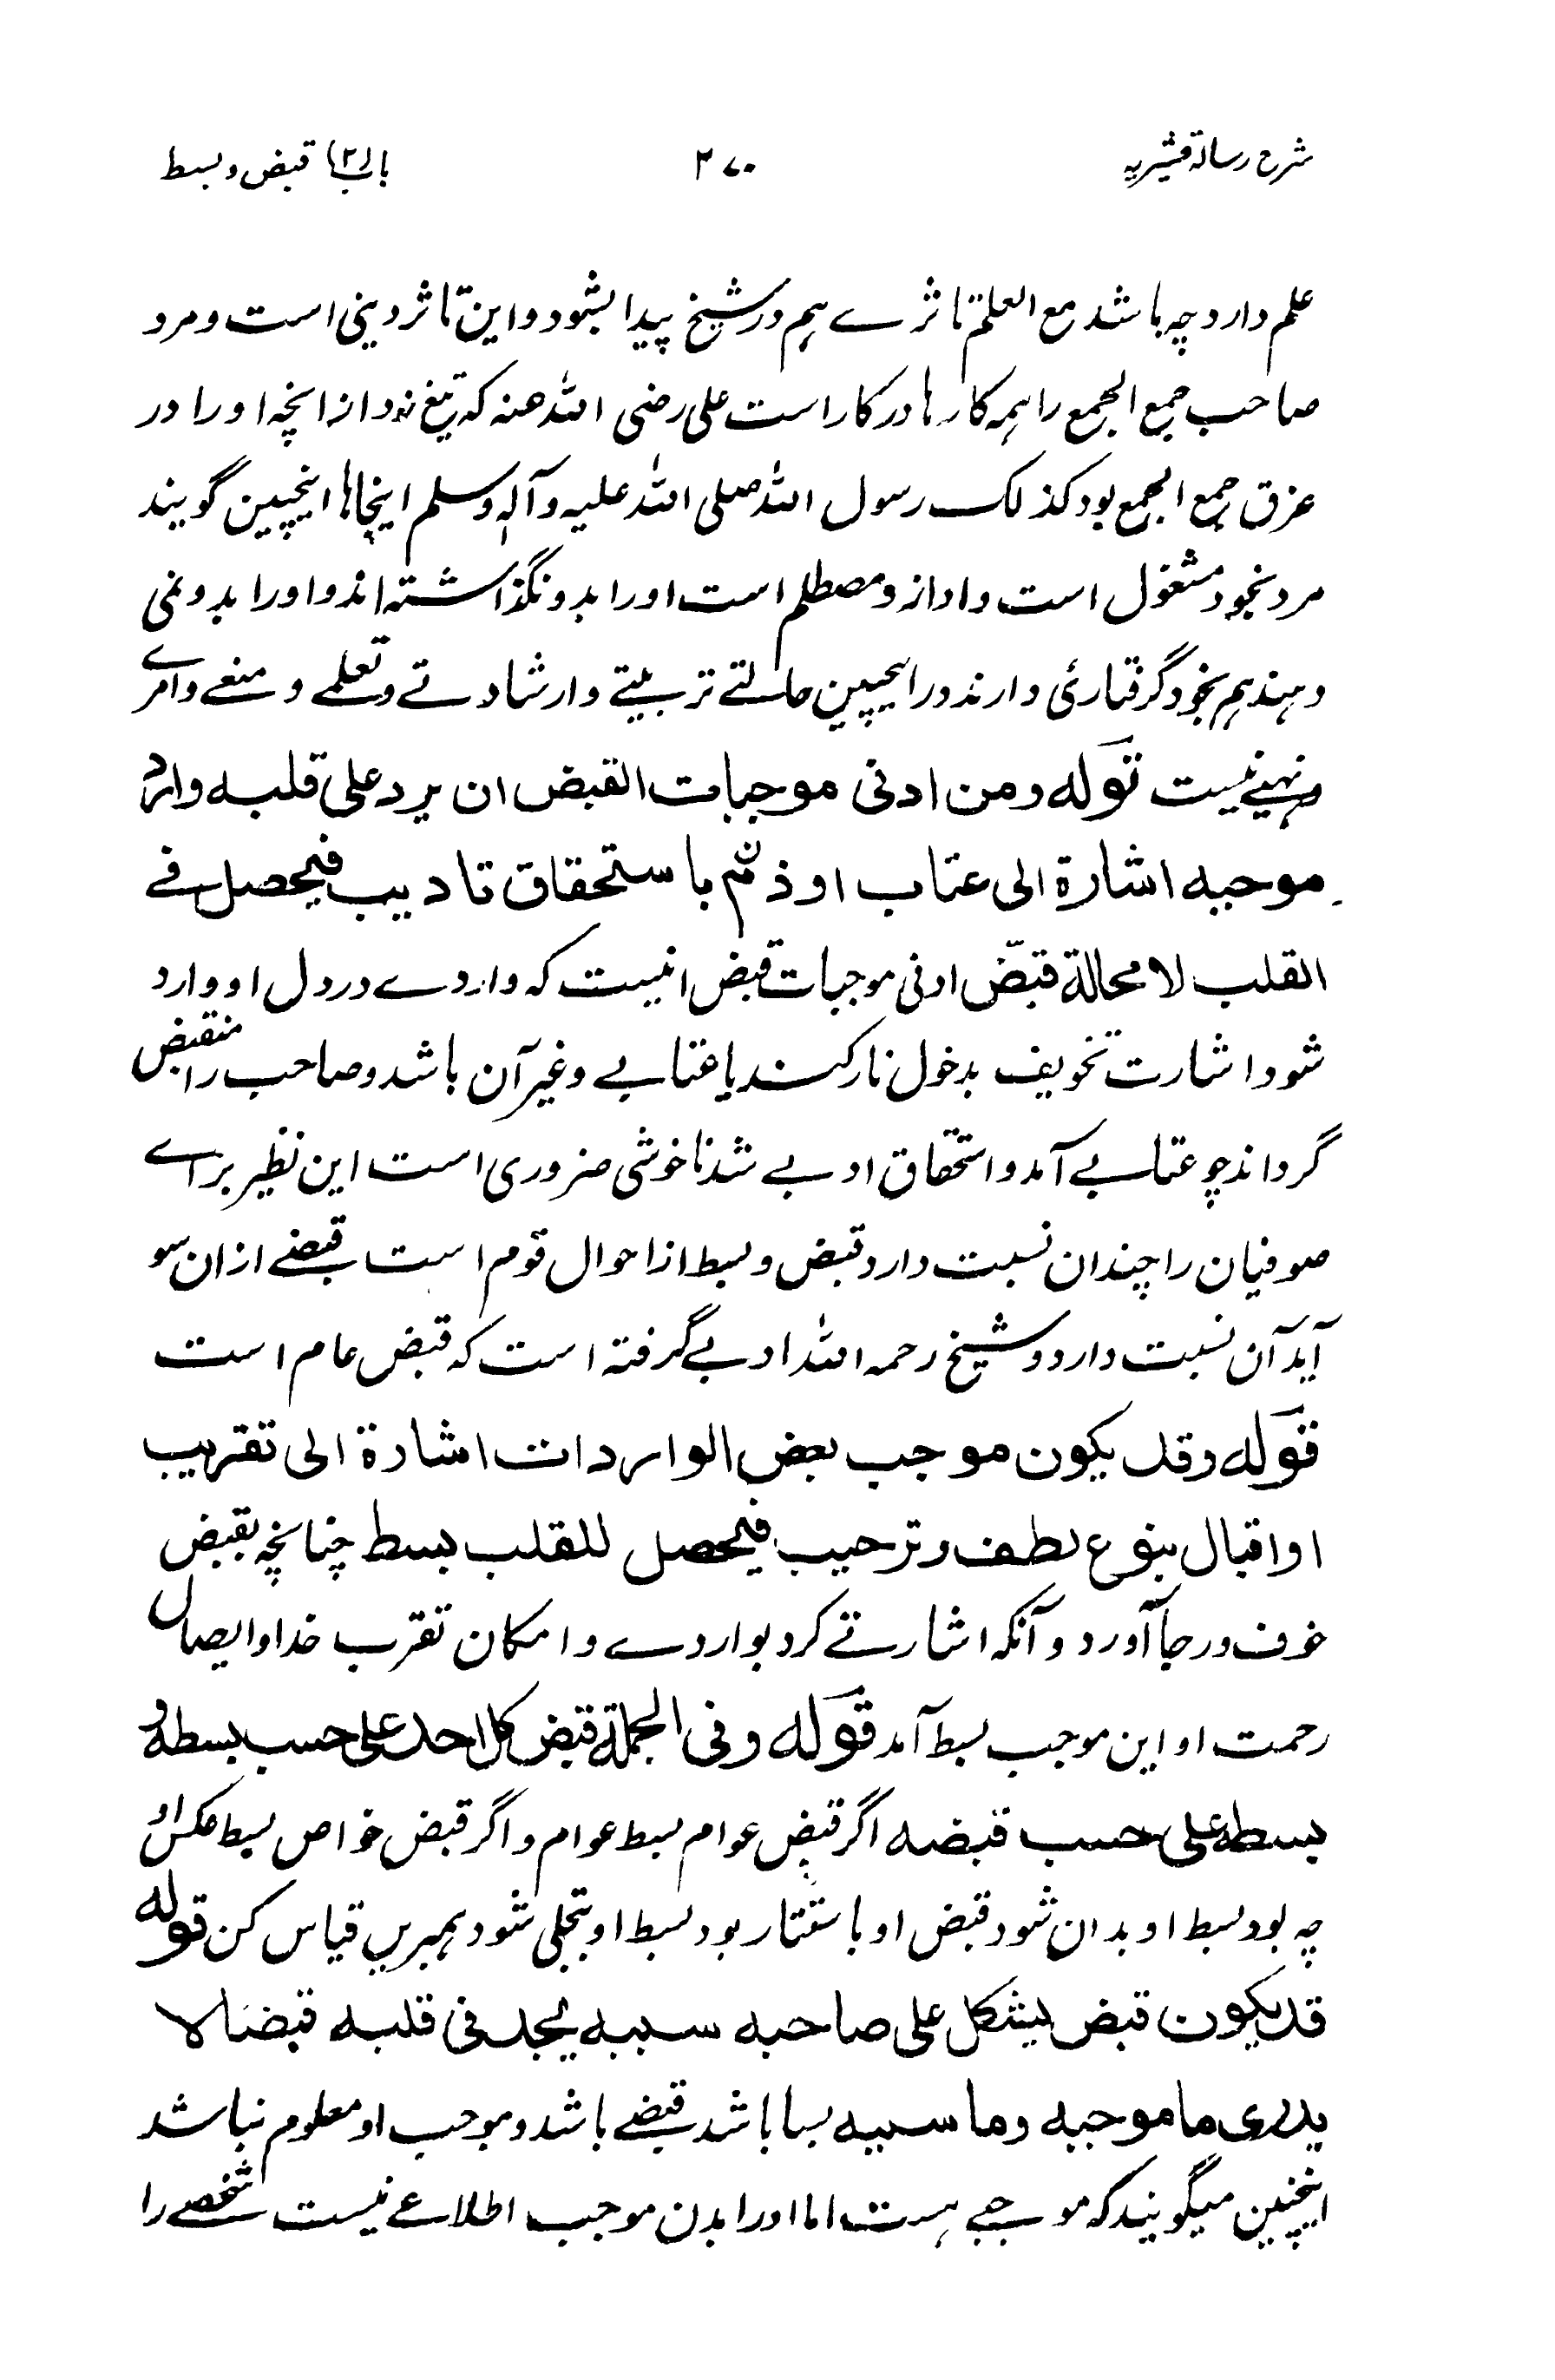 شرح رسالۀ قشیریہ ۲۷۰ باب (۳) قبض و بسط
علم دارد چہ باشد مع العلم تاثرے ہم در شیخ پیدا بشود و این تاثر دینی است و مرد
صاحب جمع الجمع را ہمہ کارہا در کار است علی رضی اللہ عنہ کہ تیغ زد از انچہ او را در
عزق جمع الجمع بود کذلک رسول اللہ صلی اللہ علیہ وآلہ وسلم اینجاہا اینچنین گویند
مرد بخود مشغول است و او از و مصطلم است او را بدو نگذاشتہ اند و او را بدو نمی
دہند ہم بخود گرفتاری دارند در اینچنین حالتے تربیتے و ارشادتے و تعلمے و منعے و امرے
و نہیئے نیست قولہ ومن ادنی موجبات القبض ان یرد علی قلبہ وارد
موجبہ اشارة الی عتاب او ذم باستحقاق تادیب فیحصل فے
القلب لا محالة قبض ادنی موجبات قبض انیست کہ واردے در دل او وارد
شود اشارت تخویف بدخول نار کند یا عتابے و غیر آن باشد و صاحب را منقبض
گرداند چو عتابے آمد و استحقاق ادبے شد ناخوشی ضروری است این نظیر براے
صوفیان را چندان نسبت دارد قبض و بسط از احوال قوم است قبضے از ان سو
آید آن نسبت دارد و شیخ رحمہ اللہ ادبے گرفتہ است کہ قبض عام است
قولہ وقد یکون موجب بعض الواردات اشارة الی تقریب
او اقبال بنوع لطف وترحیب فیحصل للقلب بسط چنانچہ بقبض
خوف و رجا آورد و آنکہ اشارتے کرد بواردے و امکان تقرب خدا و ایصال
رحمت او این موجب بسط آمد قولہ وفی الجملة قبض کل احد علی حسب بسطہ و
بسطہ علی حسب قبضہ اگر قبض عوام بسط عوام و اگر قبض خواص بسط عکس او
چہ بود بسط او بدان شود قبض او باستتار بود بسط او بتجلی شود ہمبرین قیاس کن قولہ
قد یکون قبض یشکل علی صاحبہ سببہ یجد فی قلبہ قبضا لا
یدری ما موجبہ وما سببہ بسا باشد قبضے باشد و موجب او معلوم نباشد
اینچنین میگویند کہ موجبے ہست اما او را بدن موجب اطلاعے نیست شخصے را